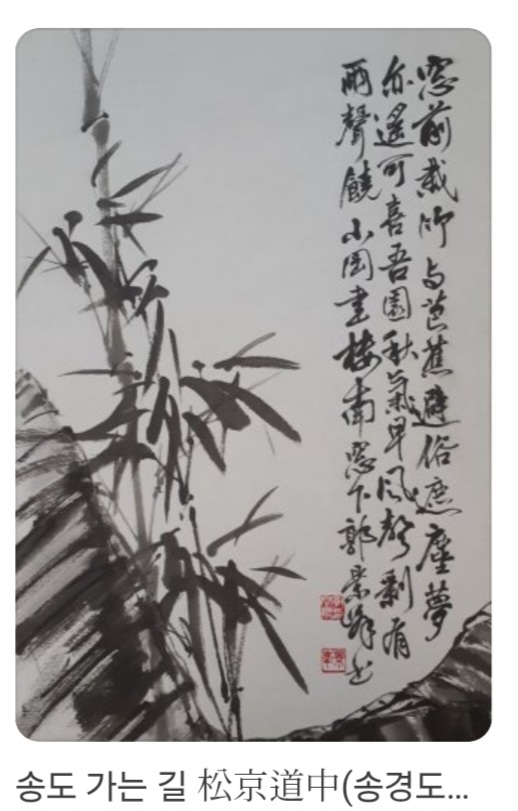 窓前栽竹与芭蕉避俗遮塵夢
亦遙可喜吾園秋氣早風聲剩有
雨聲饒 小園 樓南窓下郭
송도 가는 길 松京道中(송경도...